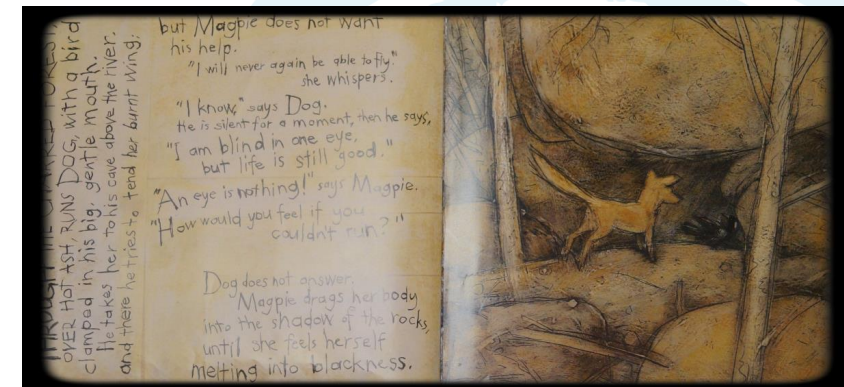 THROUGH THE CHARRED FOREST,
OVER HOT ASH, RUNS DOG, with a bird
clamped in his big, gentle mouth.
He takes her to his cave above the river,
and there he tries to tend her burnt wing;
but Magpie does not want
his help.
"I will never again be able to fly."
she whispers.
"I know," says Dog.
He is silent for a moment, then he says,
"I am blind in one eye,
but life is still good."
"An eye is nothing!" says Magpie.
"How would you feel if you
couldn't run?"
Dog does not answer.
Magpie drags her body
into the shadow of the rocks,
until she feels herself
melting into blackness.